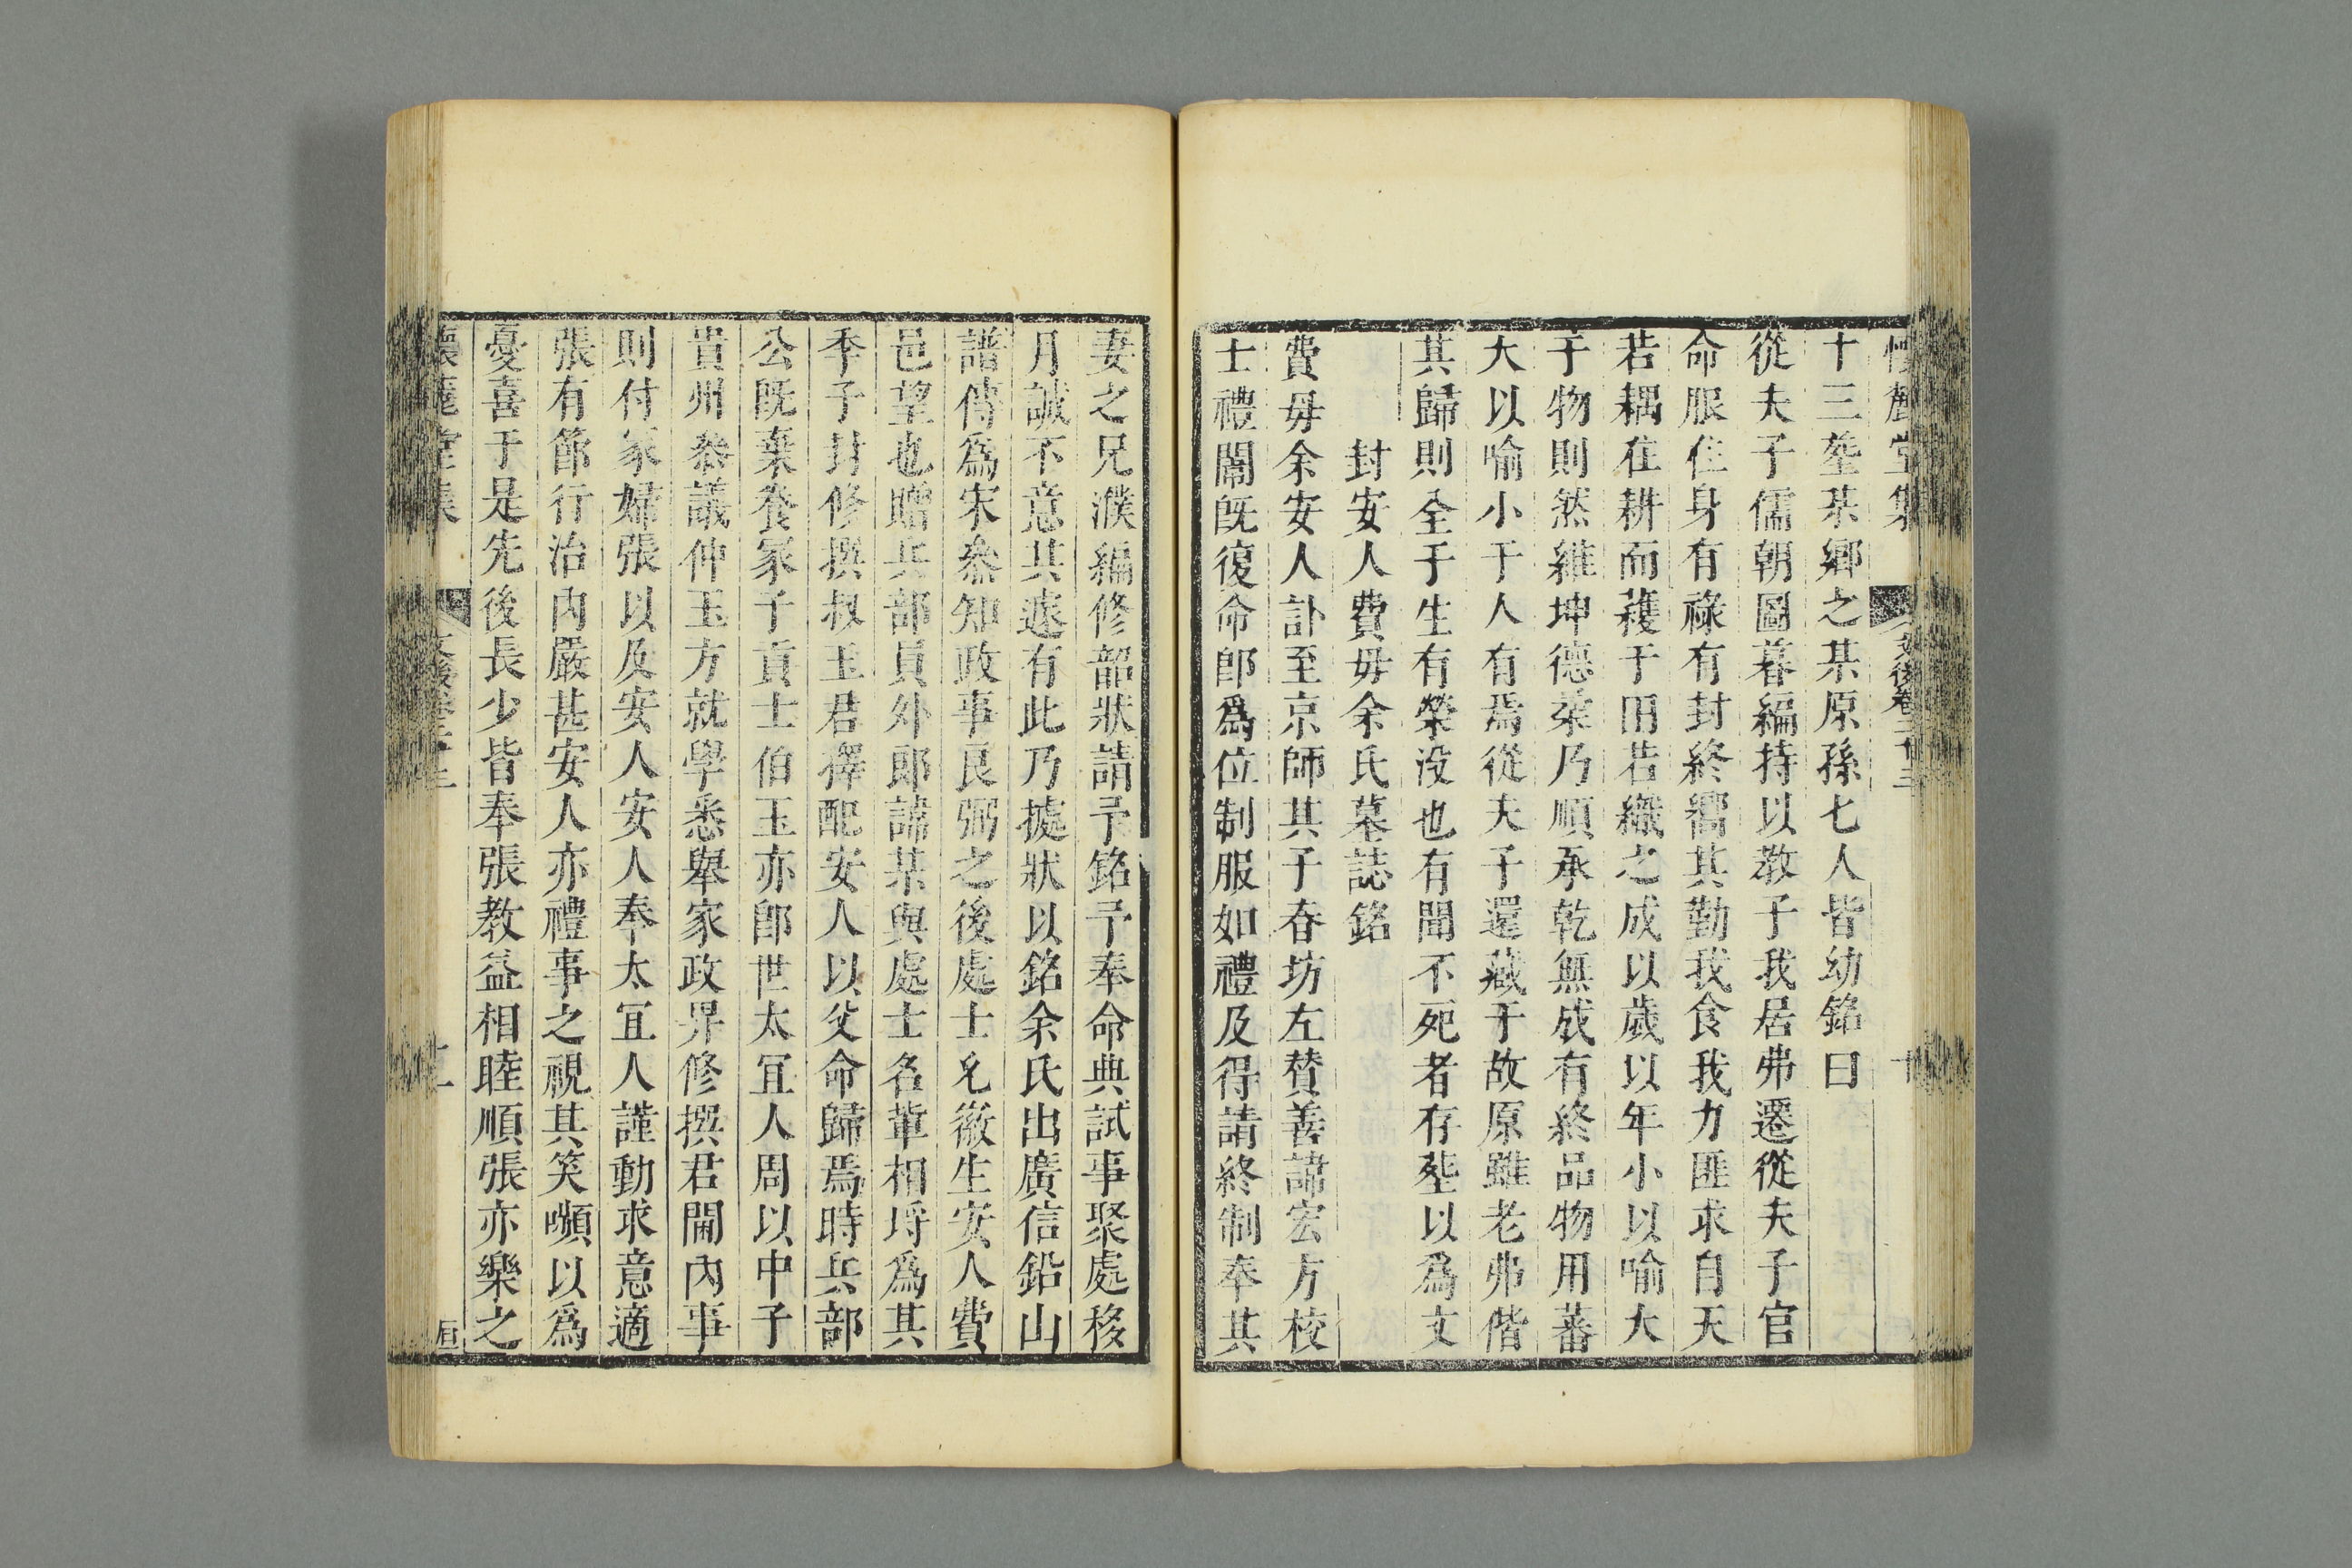 懷麓堂集 文後卷二十三 十
十三塋某鄉之某原孫七人皆幼銘曰
從夫子儒朝圖暮編持以教子我居弗遷從夫子官
命服在身有祿有封終嚮其勤我食我力匪求自天
若耦在耕而穫于田若織之成以歲以年小以喻大
于物則然維坤德柔乃順承乾無成有終品物用蕃
大以喻小于人有焉從夫子還藏于故原雖老弗偕
其歸則全于生有榮没也有聞不死者存塟以爲文
封安人費母余氏墓誌銘
費母余安人訃至京師其子春坊左贊善諱宏方校
士禮闈既復命即爲位制服如禮及得請終制奉其
妻之兄濮編修韶狀請予銘予奉命典試事聚處移
月誠不意其遽有此乃據狀以銘余氏出廣信鉛山
譜傳爲宋叅知政事良弼之後處士允徽生安人費
邑望也贈兵部員外郎諱某與處士名輩相埓爲其
季子封修撰叔玉君擇配安人以父命歸焉時兵部
公既棄養冢子貢士伯玉亦即世太宜人周以中子
貴州叅議仲玉方就學悉舉家政畀修撰君閫內事
則付冢婦張以及安人安人奉太宜人謹動求意適
張有節行治內嚴甚安人亦禮事之視其笑嚬以爲
憂喜于是先後長少皆奉張教益相睦順張亦樂之
懷麓堂集 文後卷二十三 十一